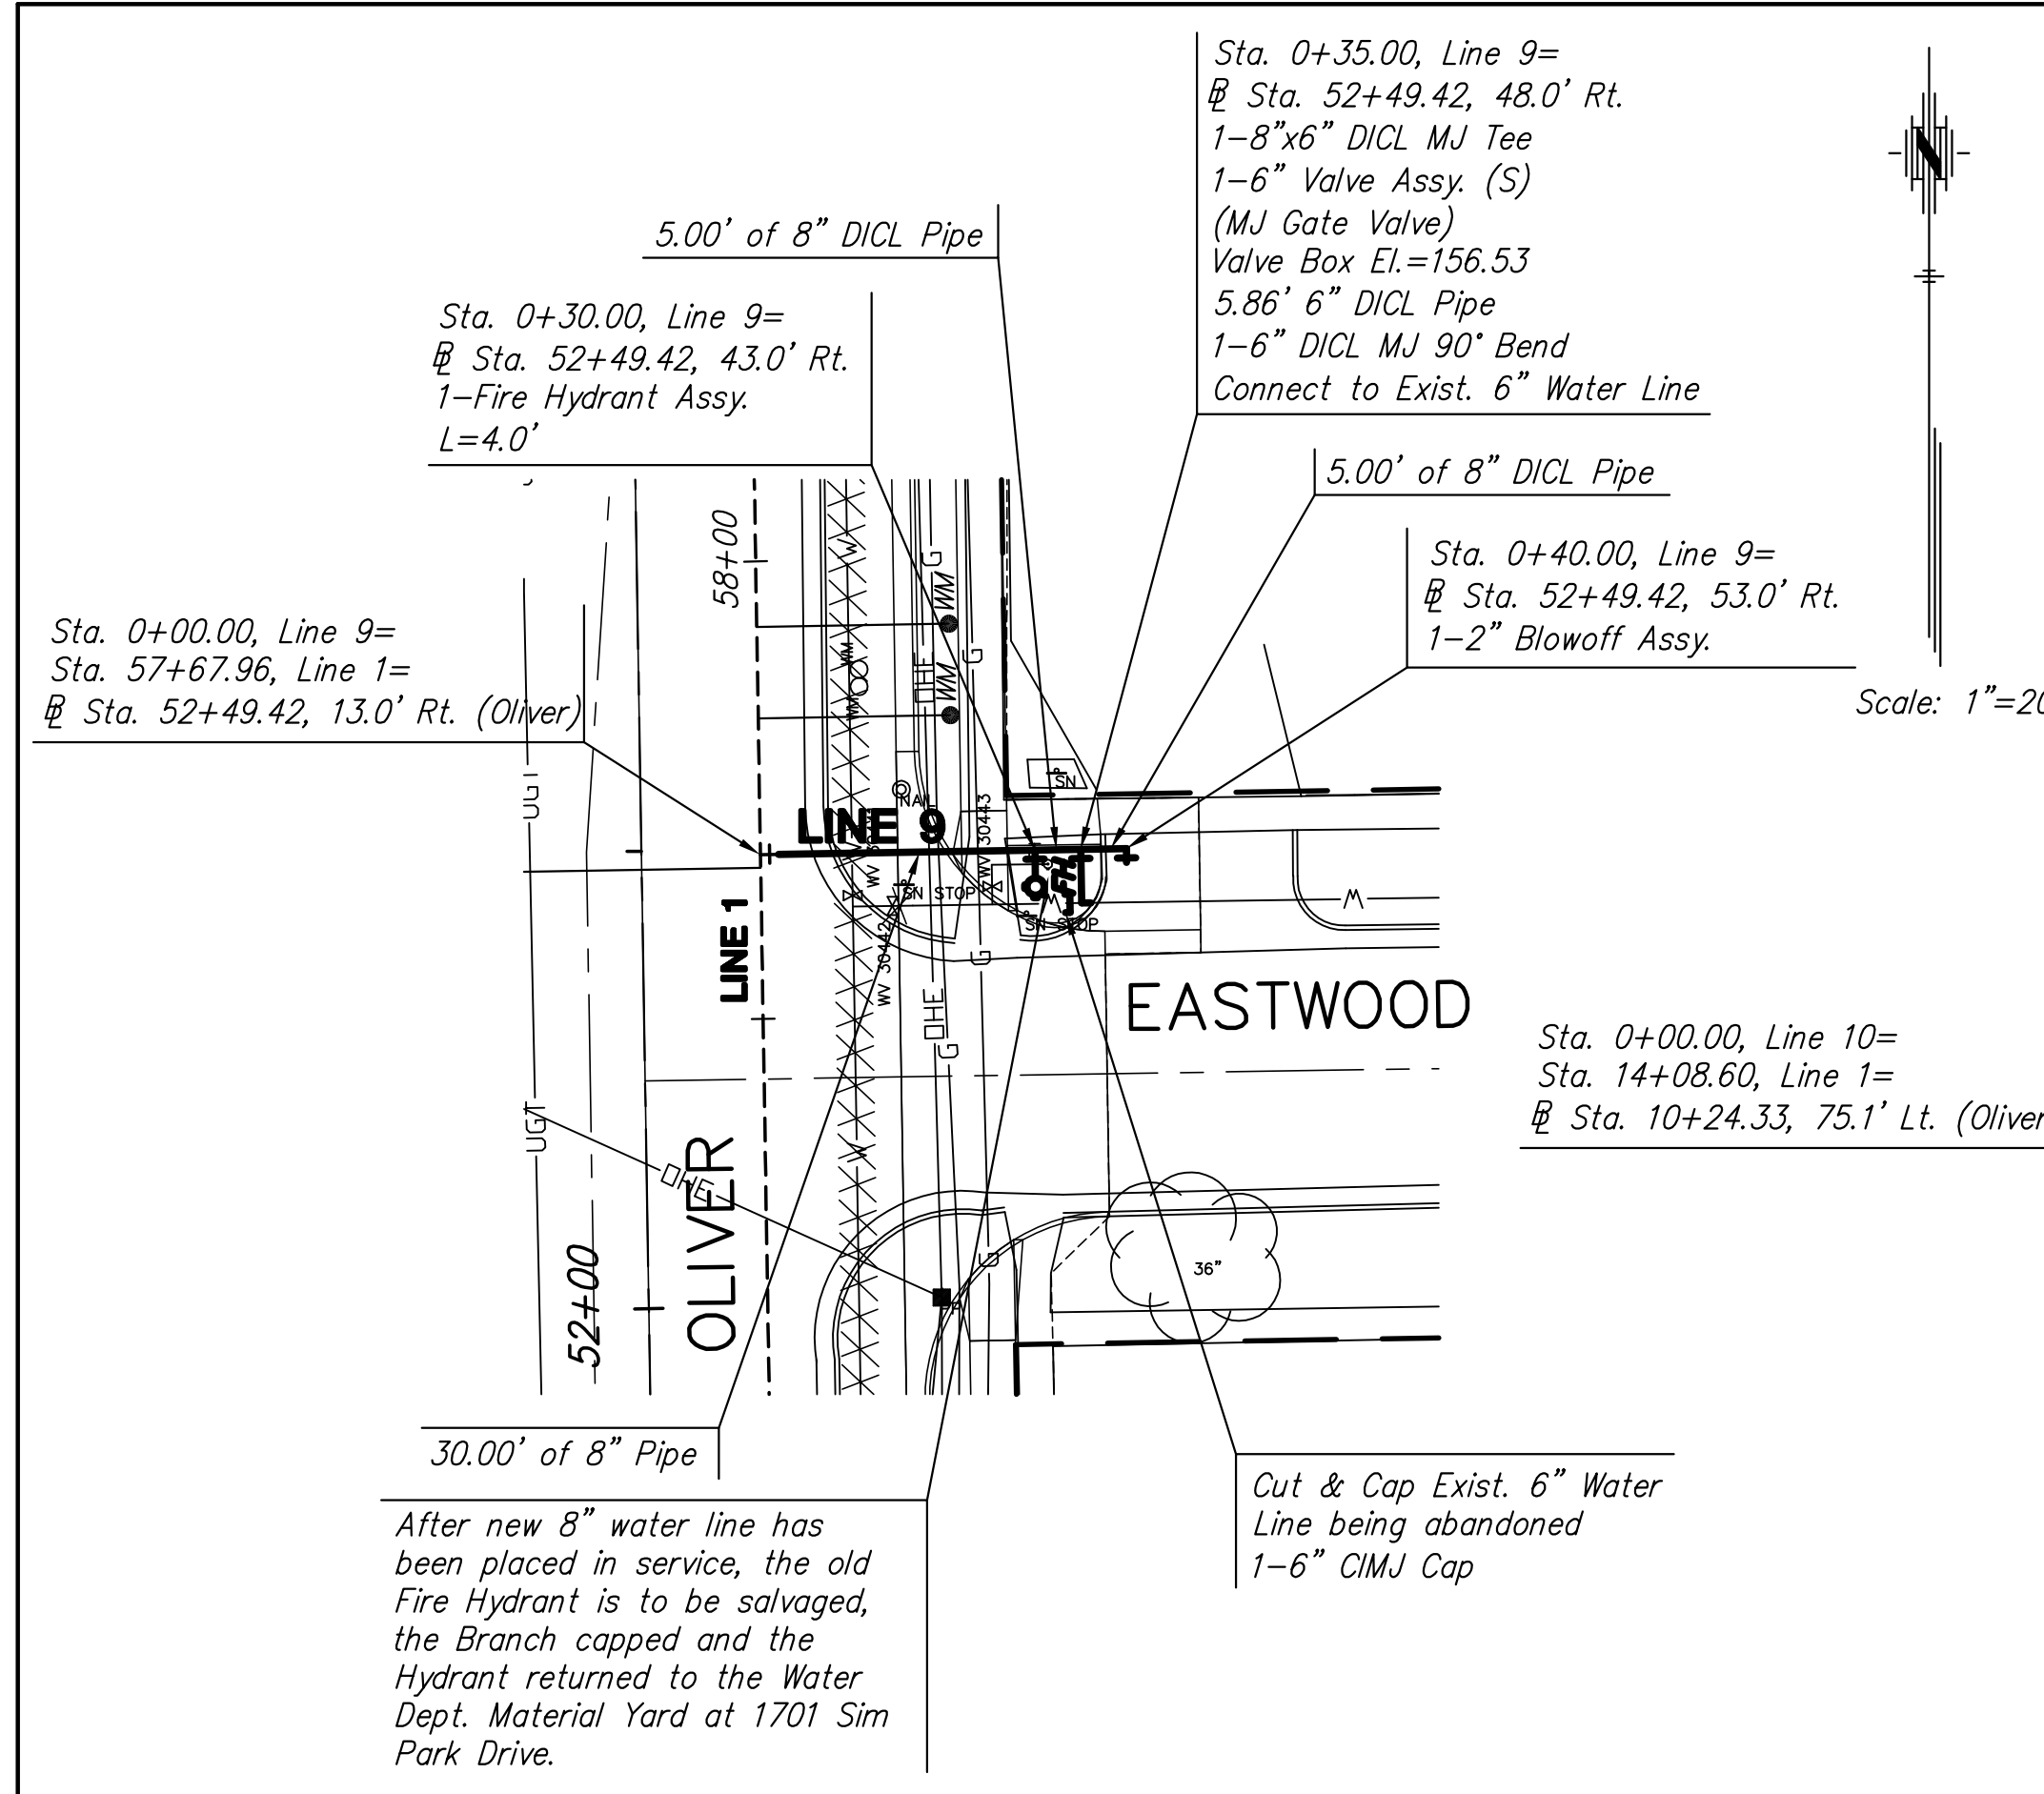 Sta. 0+35.00, Line 9=
℄ Sta. 52+49.42, 48.0' Rt.
1-8"x6" DICL MJ Tee
1-6" Valve Assy. (S)
(MJ Gate Valve)
Valve Box El.=156.53
5.86' 6" DICL Pipe
1-6" DICL MJ 90° Bend
Connect to Exist. 6" Water Line
N
5.00' of 8" DICL Pipe
Sta. 0+30.00, Line 9=
℄ Sta. 52+49.42, 43.0' Rt.
1-Fire Hydrant Assy.
L=4.0'
5.00' of 8" DICL Pipe
Sta. 0+40.00, Line 9=
℄ Sta. 52+49.42, 53.0' Rt.
1-2" Blowoff Assy.
Sta. 0+00.00, Line 9=
Sta. 57+67.96, Line 1=
℄ Sta. 52+49.42, 13.0' Rt. (Oliver)
Scale: 1"=20
58+00
W
G
WM
OHE
WM
G
WM
WM
UGT
SN
NAIL
LINE 9
WV 30443
WV
FH
SN STOP
W
W
SN STOP
LINE 1
WV 30442
G
OHE
G
EASTWOOD
Sta. 0+00.00, Line 10=
Sta. 14+08.60, Line 1=
℄ Sta. 10+24.33, 75.1' Lt. (Oliver
UGT
W
OHE
OLIVER
52+00
G
PP
36"
30.00' of 8" Pipe
After new 8" water line has
been placed in service, the old
Fire Hydrant is to be salvaged,
the Branch capped and the
Hydrant returned to the Water
Dept. Material Yard at 1701 Sim
Park Drive.
Cut & Cap Exist. 6" Water
Line being abandoned
1-6" CIMJ Cap